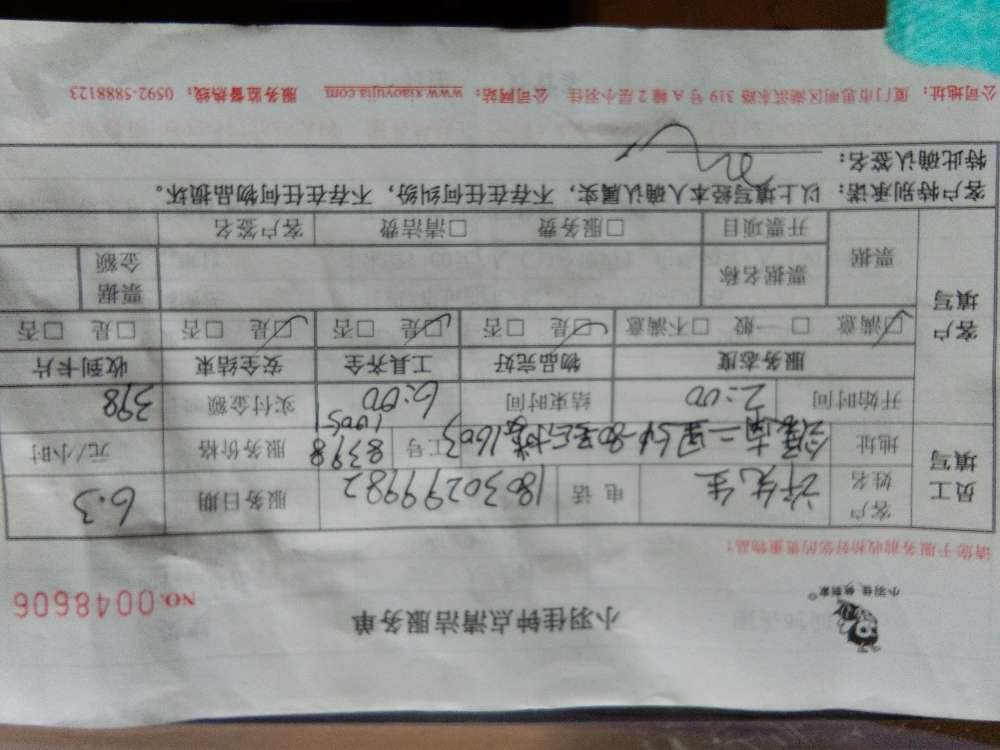 小羽佳钟点清洁服务单
小羽佳
NO.0048606
请您于服务前收拾好您的贵重物品!
员工填写 客户姓名 许先生 电话 18030299982 服务日期 6.3
地址 二里 1603 工号 8398 1005 服务价格 元/小时
开始时间 2:00 结束时间 6:00 实付金额 398
客户填写 服务态度 物品完好 工具齐全 安全结束 收到卡片
☑满意 □一般 □不满意 ☑是 □否 ☑是 □否 ☑是 □否 □是 □否
票据 票据名称 票据金额
开票项目 □服务费 □清洁费 客户签名
客户特别承诺: 以上填写经本人确认属实,不存在任何纠纷,不存在任何物品损坏。
特此确认签名:
公司地址: 厦门市思明区湖滨东路 319 号 A 幢 2 层小羽佳 公司网站: www.xiaoyujia.com 服务监督热线: 0592-5888123